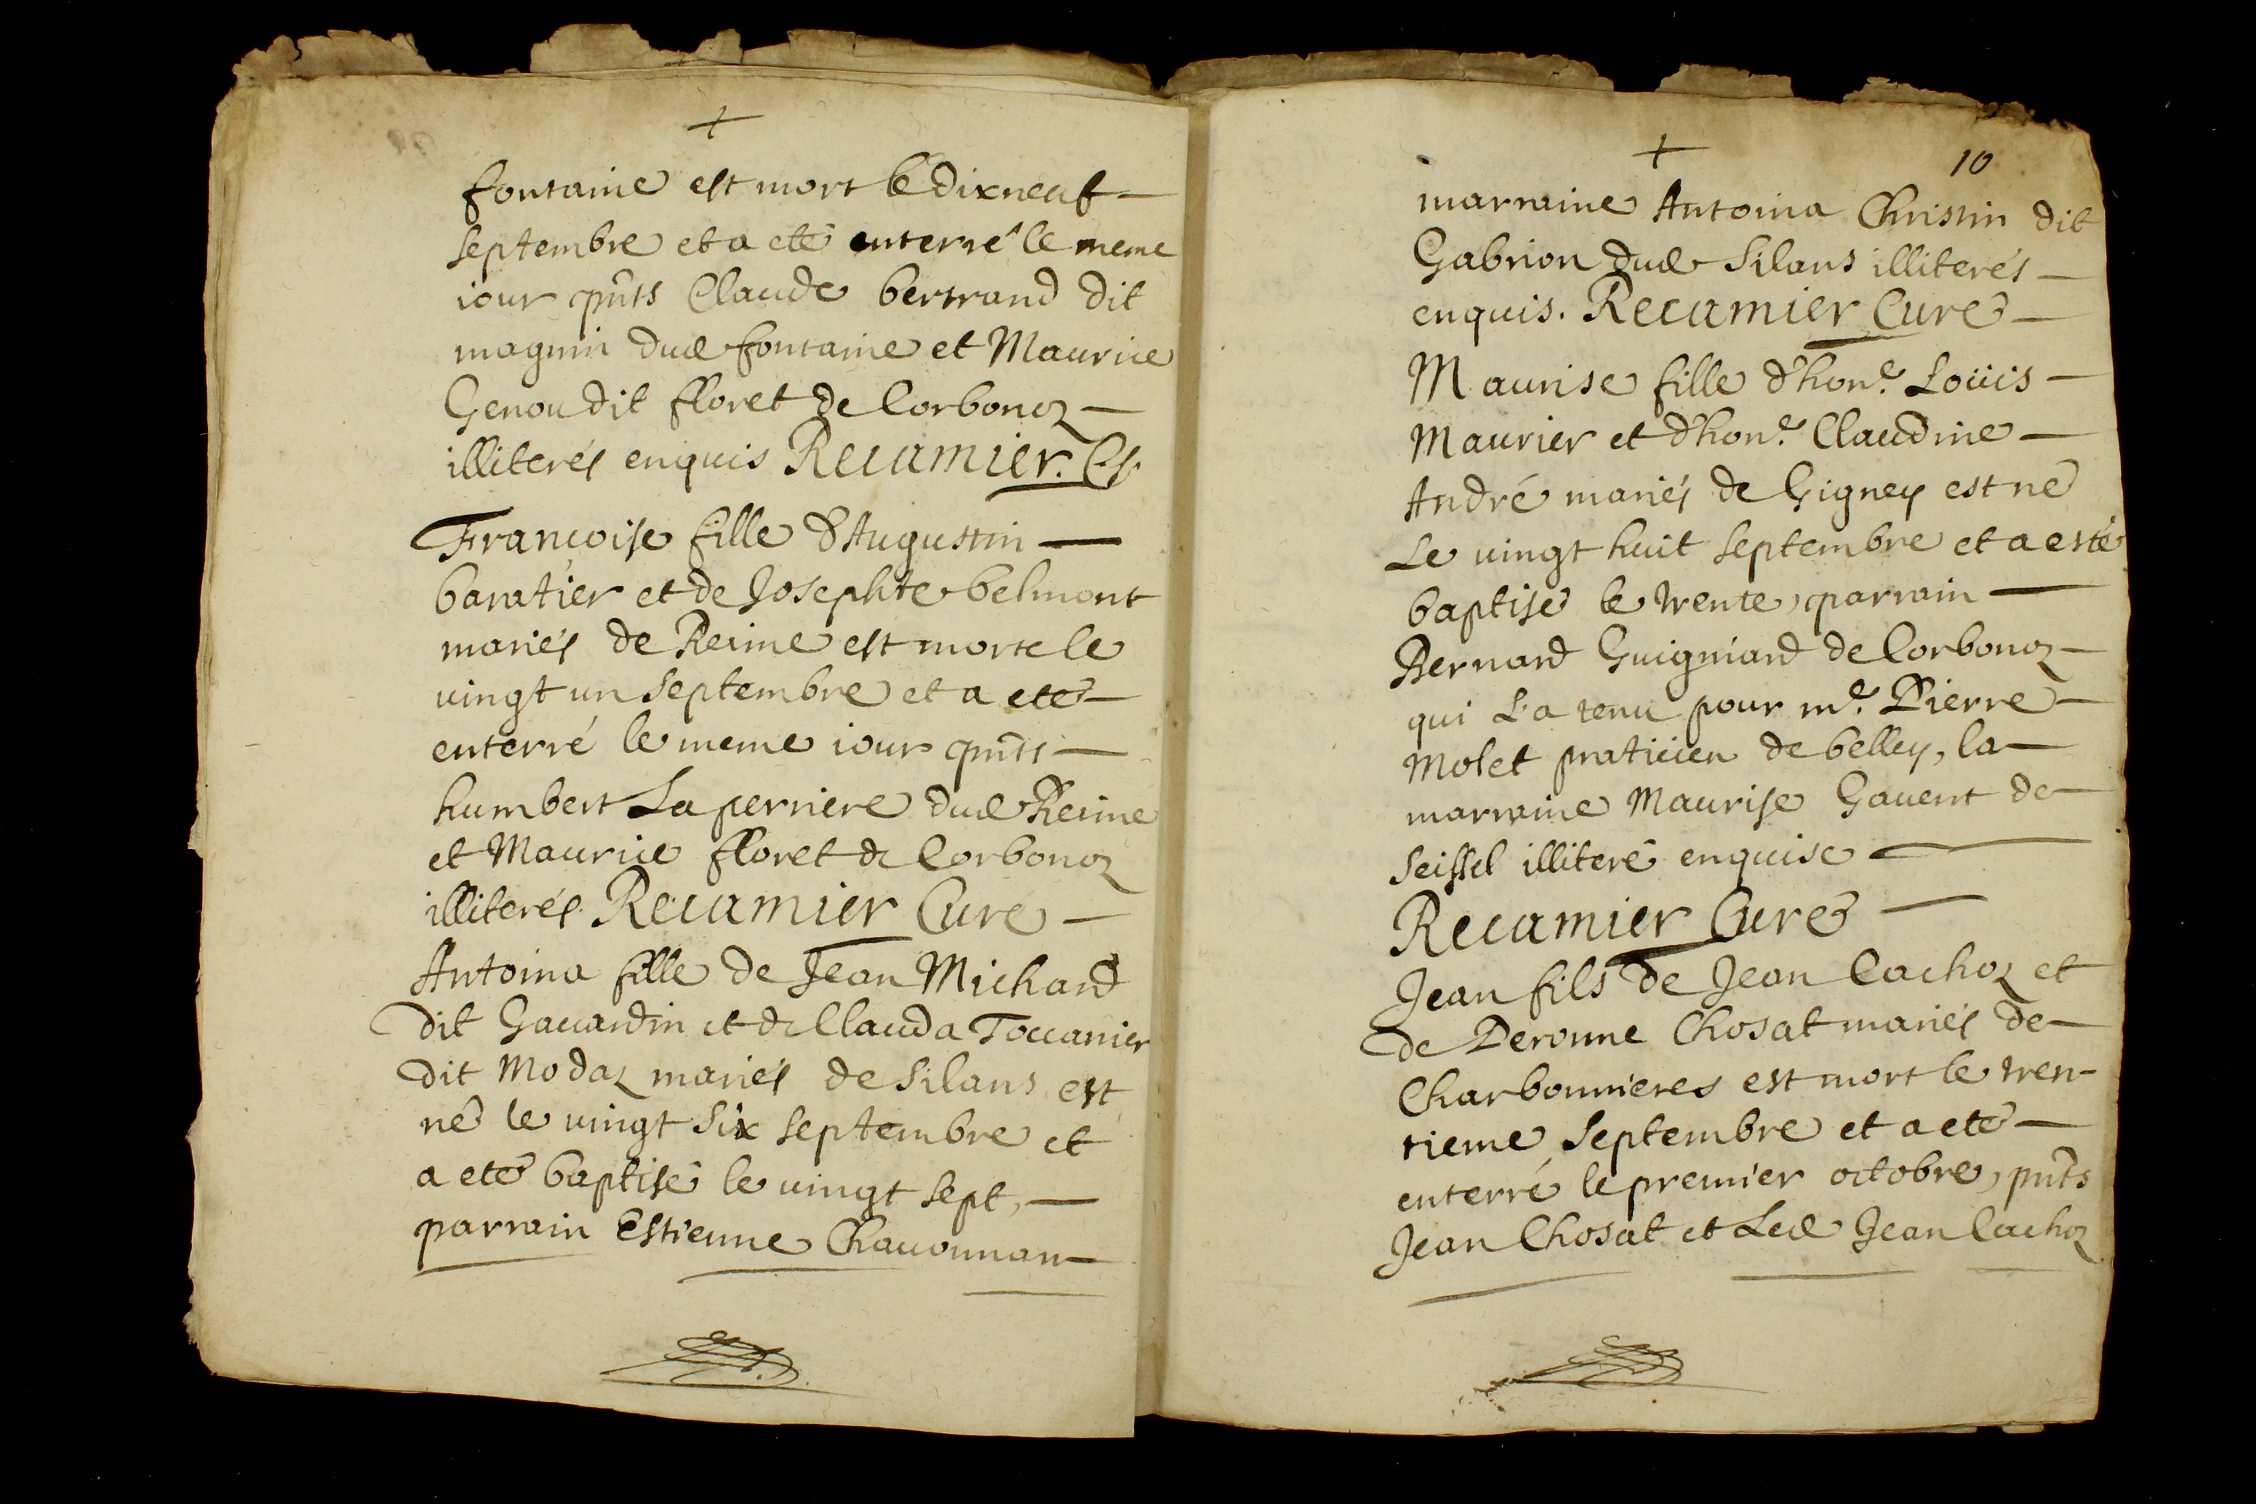 +
fontaine est mort le dixneuf
septembre et a eté enterré le meme
iour pnts Claude bertrand dit
magnin dud fontaine et Maurice
Genou dit floret de Corbonoz
illiterés enquis Recamier. C.
Françoise fille d'Augustin
baratier et de Josephte belmont
mariés de Reime est morte le
vingt un septembre et a eté
enterré le meme iour pnts
humbert Laperriere dud Reime
et Maurice floret de Corbonoz
illiterés. Recamier Curé
Antoina fille de Jean Michard
dit Gauardin et de Clauda Toccanier
dit Modaz mariés de Silans est
né le vingt six septembre et
a eté baptisé le vingt sept,
parrain Estienne Chauonnan
+
10
marraine Antoina Christin dit
Gabrion dud Silans illiterés
enquis. Recamier Curé
Maurise fille d'hon.e Loüis
Maurier et d'hon.e Claudine
André mariés de Gigney est né
Le vingt huit septembre et a esté
baptisé le trente, parrain
Bernard Guigniard de Corbonoz
qui L'a tenu pour m.e Pierre
Molet praticien de belley, la
marraine Maurise Gauent de
Seissel illiteré enquise
Recamier Curé
Jean fils de Jean Cachoz et
de Peronne Chosat mariés de
Charbonnieres est mort le tren-
tieme septembre et a eté
enterré le premier octobre, pnts
Jean Chosat et Led Jean Cachoz